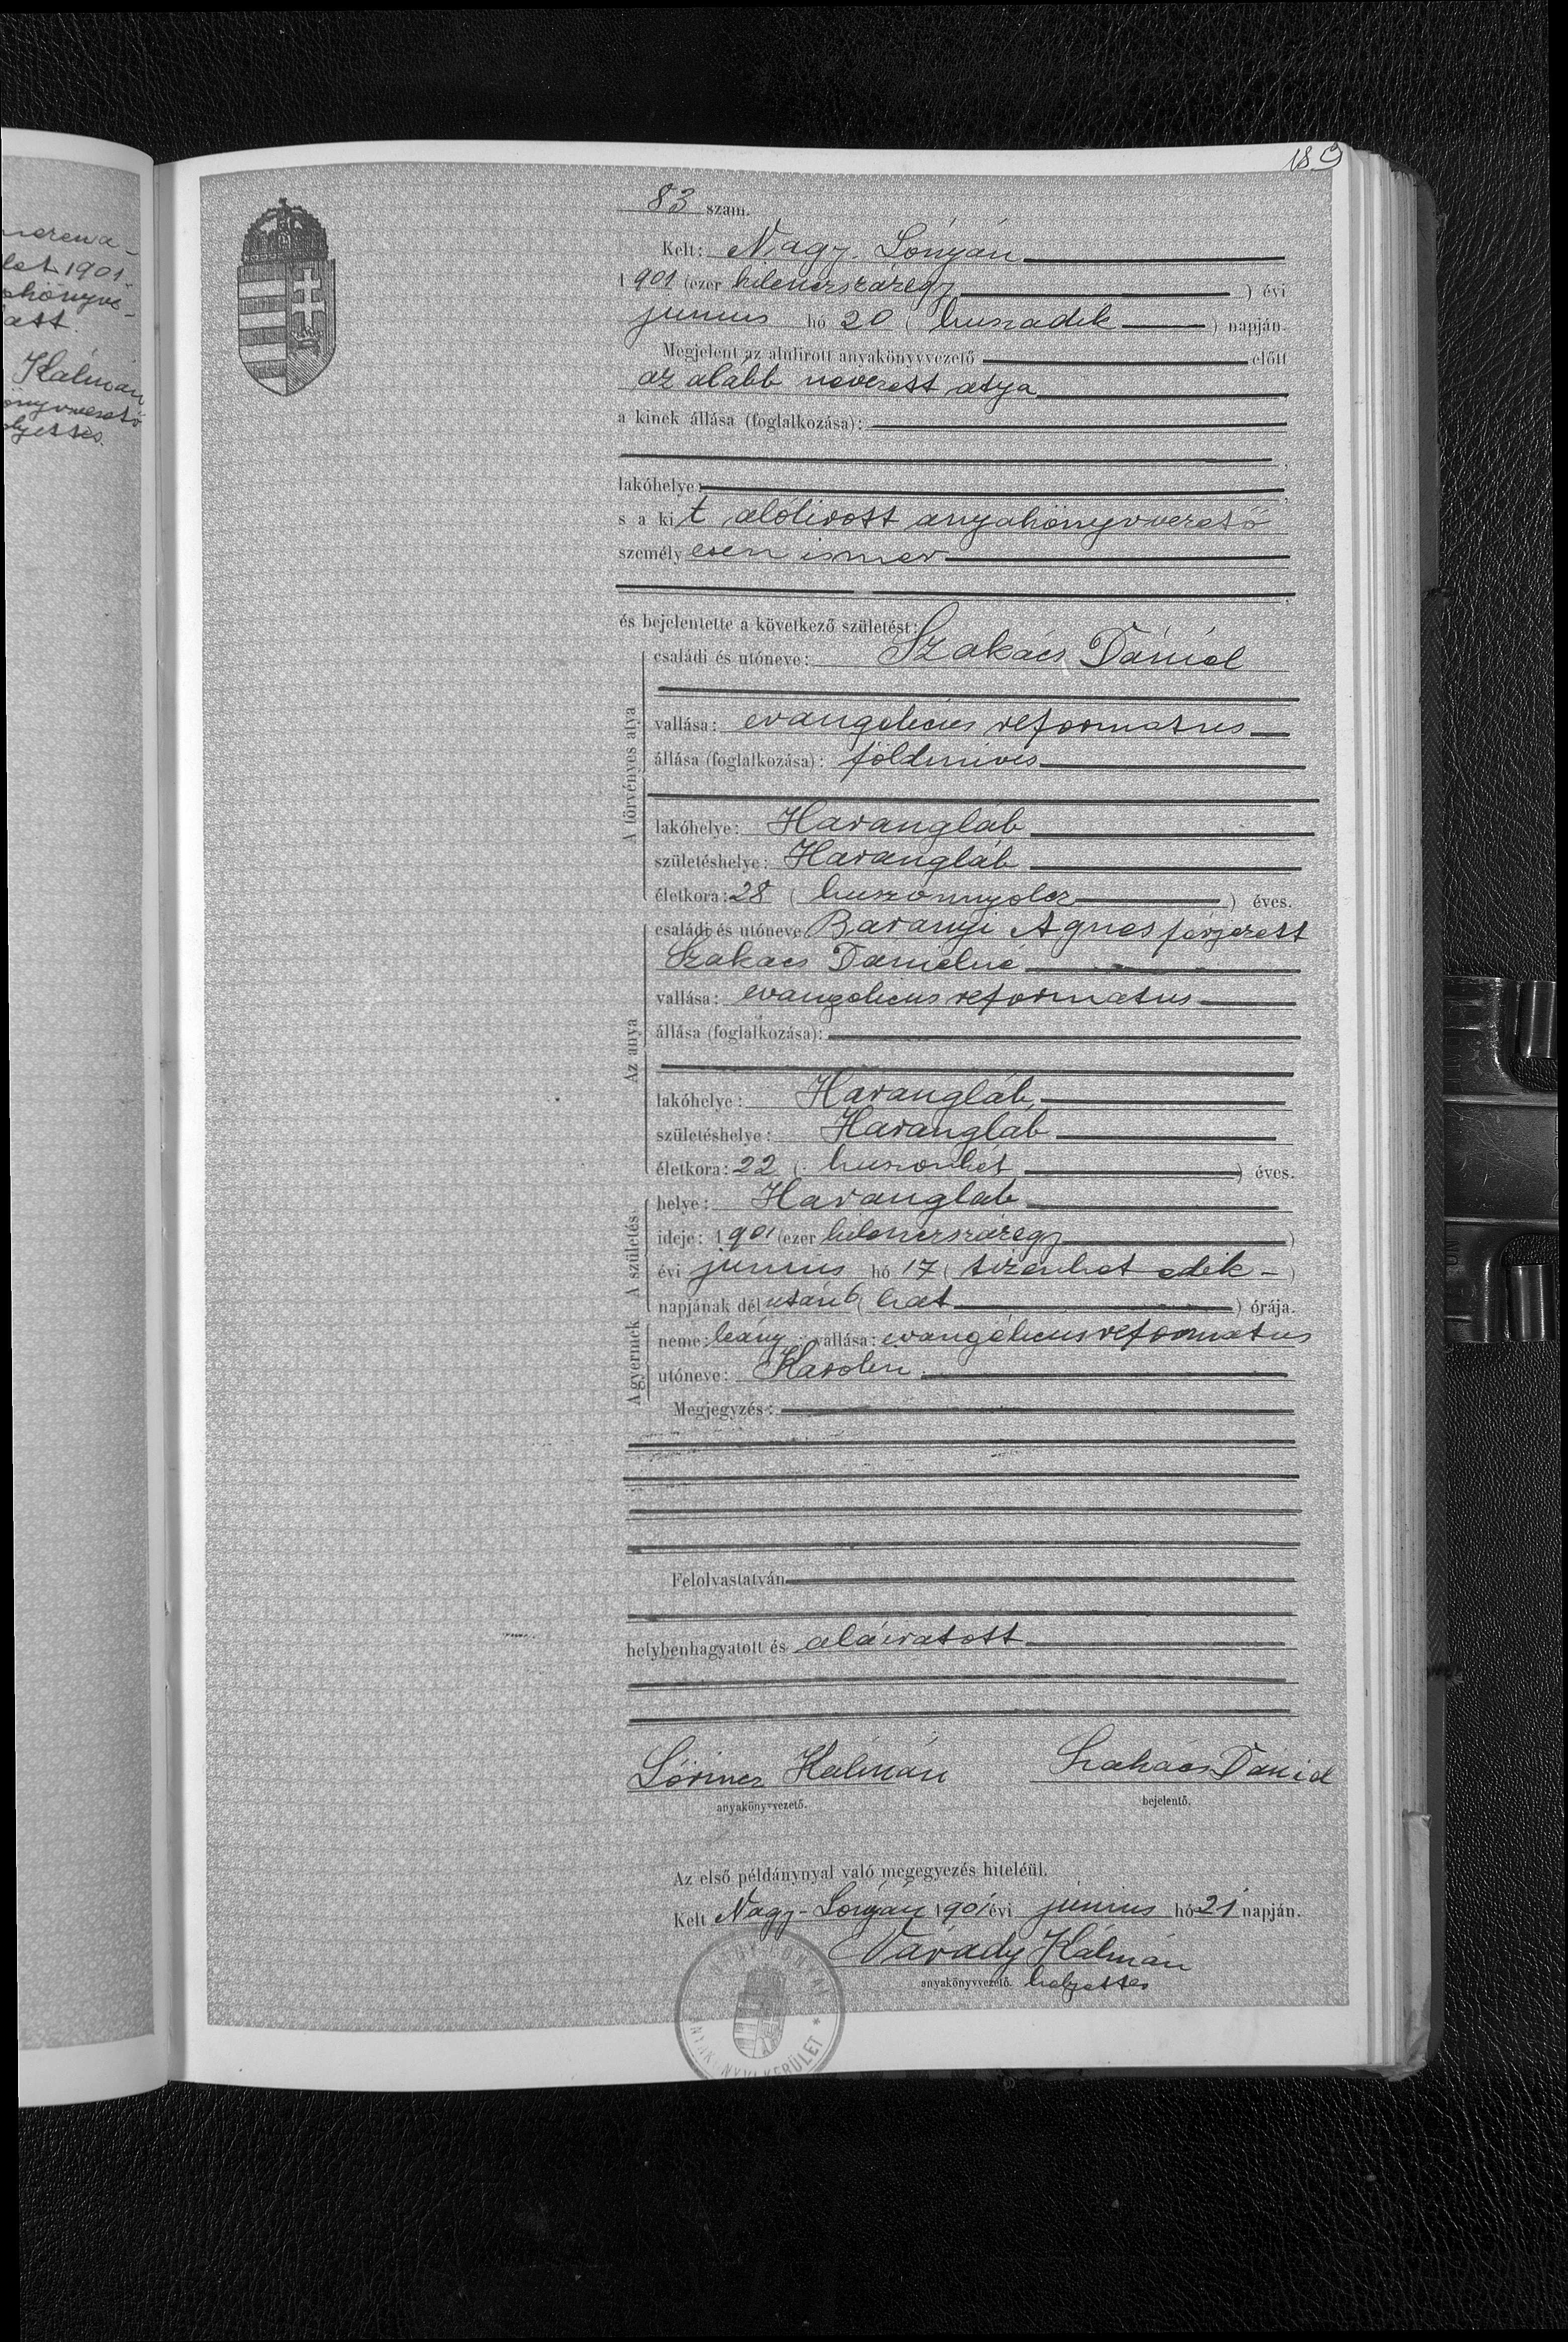 189
83 szám.
Kelt: Nagy-Sónyán
1901 (ezer kilenczszázegy) évi
junius hó 20 (huszadik) napján.
Megjelent az alulirott anyakönyvvezető előtt
az alább nevezett atya
a kinek állása (foglalkozása):
lakóhelye:
s a kit alólirott anyakönyvvezető
személyesen ismer
és bejelentette a következő születést:
A törvényes atya
családi és utóneve: Szakács Dániel
vallása: evangelicus reformatus
állása (foglalkozása): földmives
lakóhelye: Harangláb
születéshelye: Harangláb
életkora: 28 (huszonnyolcz) éves.
Az anya
családi és utóneve: Baranyi Agnes férjezett
Szakacs Danielné
vallása: evangelicus reformatus
állása (foglalkozása):
lakóhelye: Harangláb,
születéshelye: Harangláb
életkora: 22 (huszonhét) éves.
A születés
helye: Harangláb
ideje: 1901 (ezer kilenczszázegy)
évi junius hó 17 (tizenhetedik)
napjának délután 6 (hat) órája.
A gyermek
neme: leány; vallása: evangelicus reformatus
utóneve: Karolin
Megjegyzés:
Felolvastatván
helybenhagyatott és aláiratott
Lőrincz Kálmán Szakács Dániel
anyakönyvvezető. bejelentő.
Az első példánynyal való megegyezés hiteléül.
Kelt Nagy-Sónyán 1901 évi junius hó 21 napján.
Várady Kálmán
anyakönyvvezető helyettes
KERÜLET
let 1901.
Kálmán